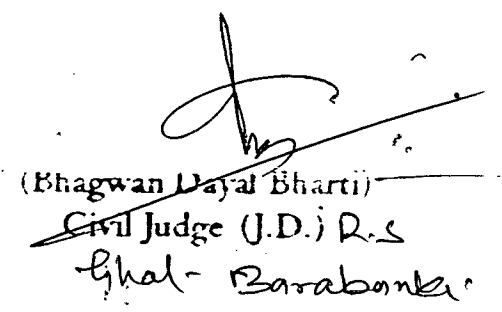 (Bhagwan Dayal Bharti)
Civil Judge (J.D.) R.S
Ghat- Barabanki.